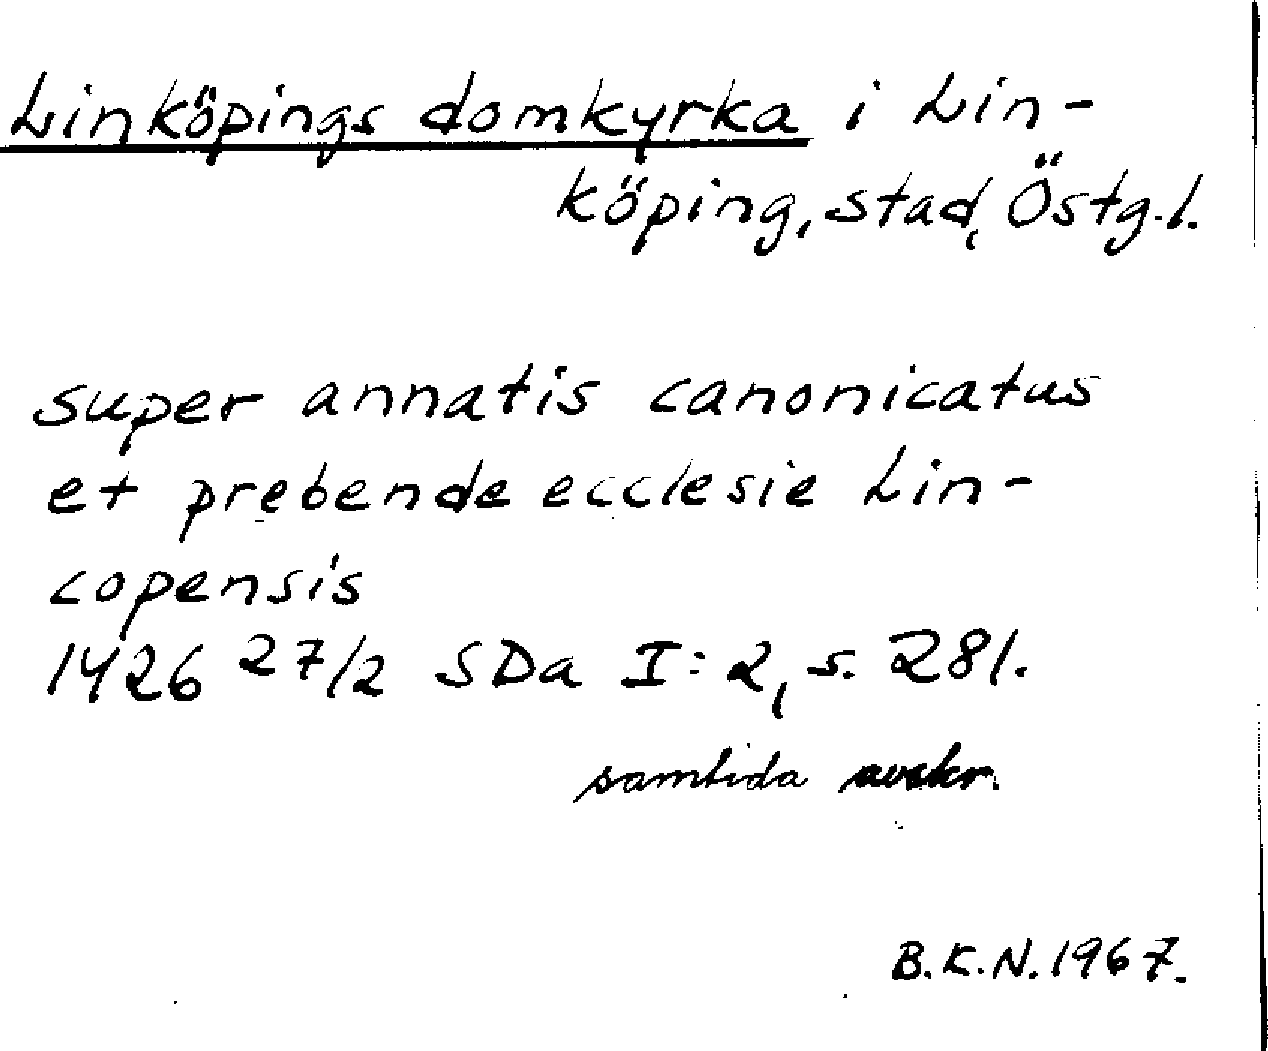 Linköpings domkyrka i Lin-
köping, stad, Östg.l.
super annatis canonicatus
et prebende ecclesie Lin-
copensis
1426 27/2 SDa I:2, s. 281.
samtida avskr.
B.K.N. 1967.